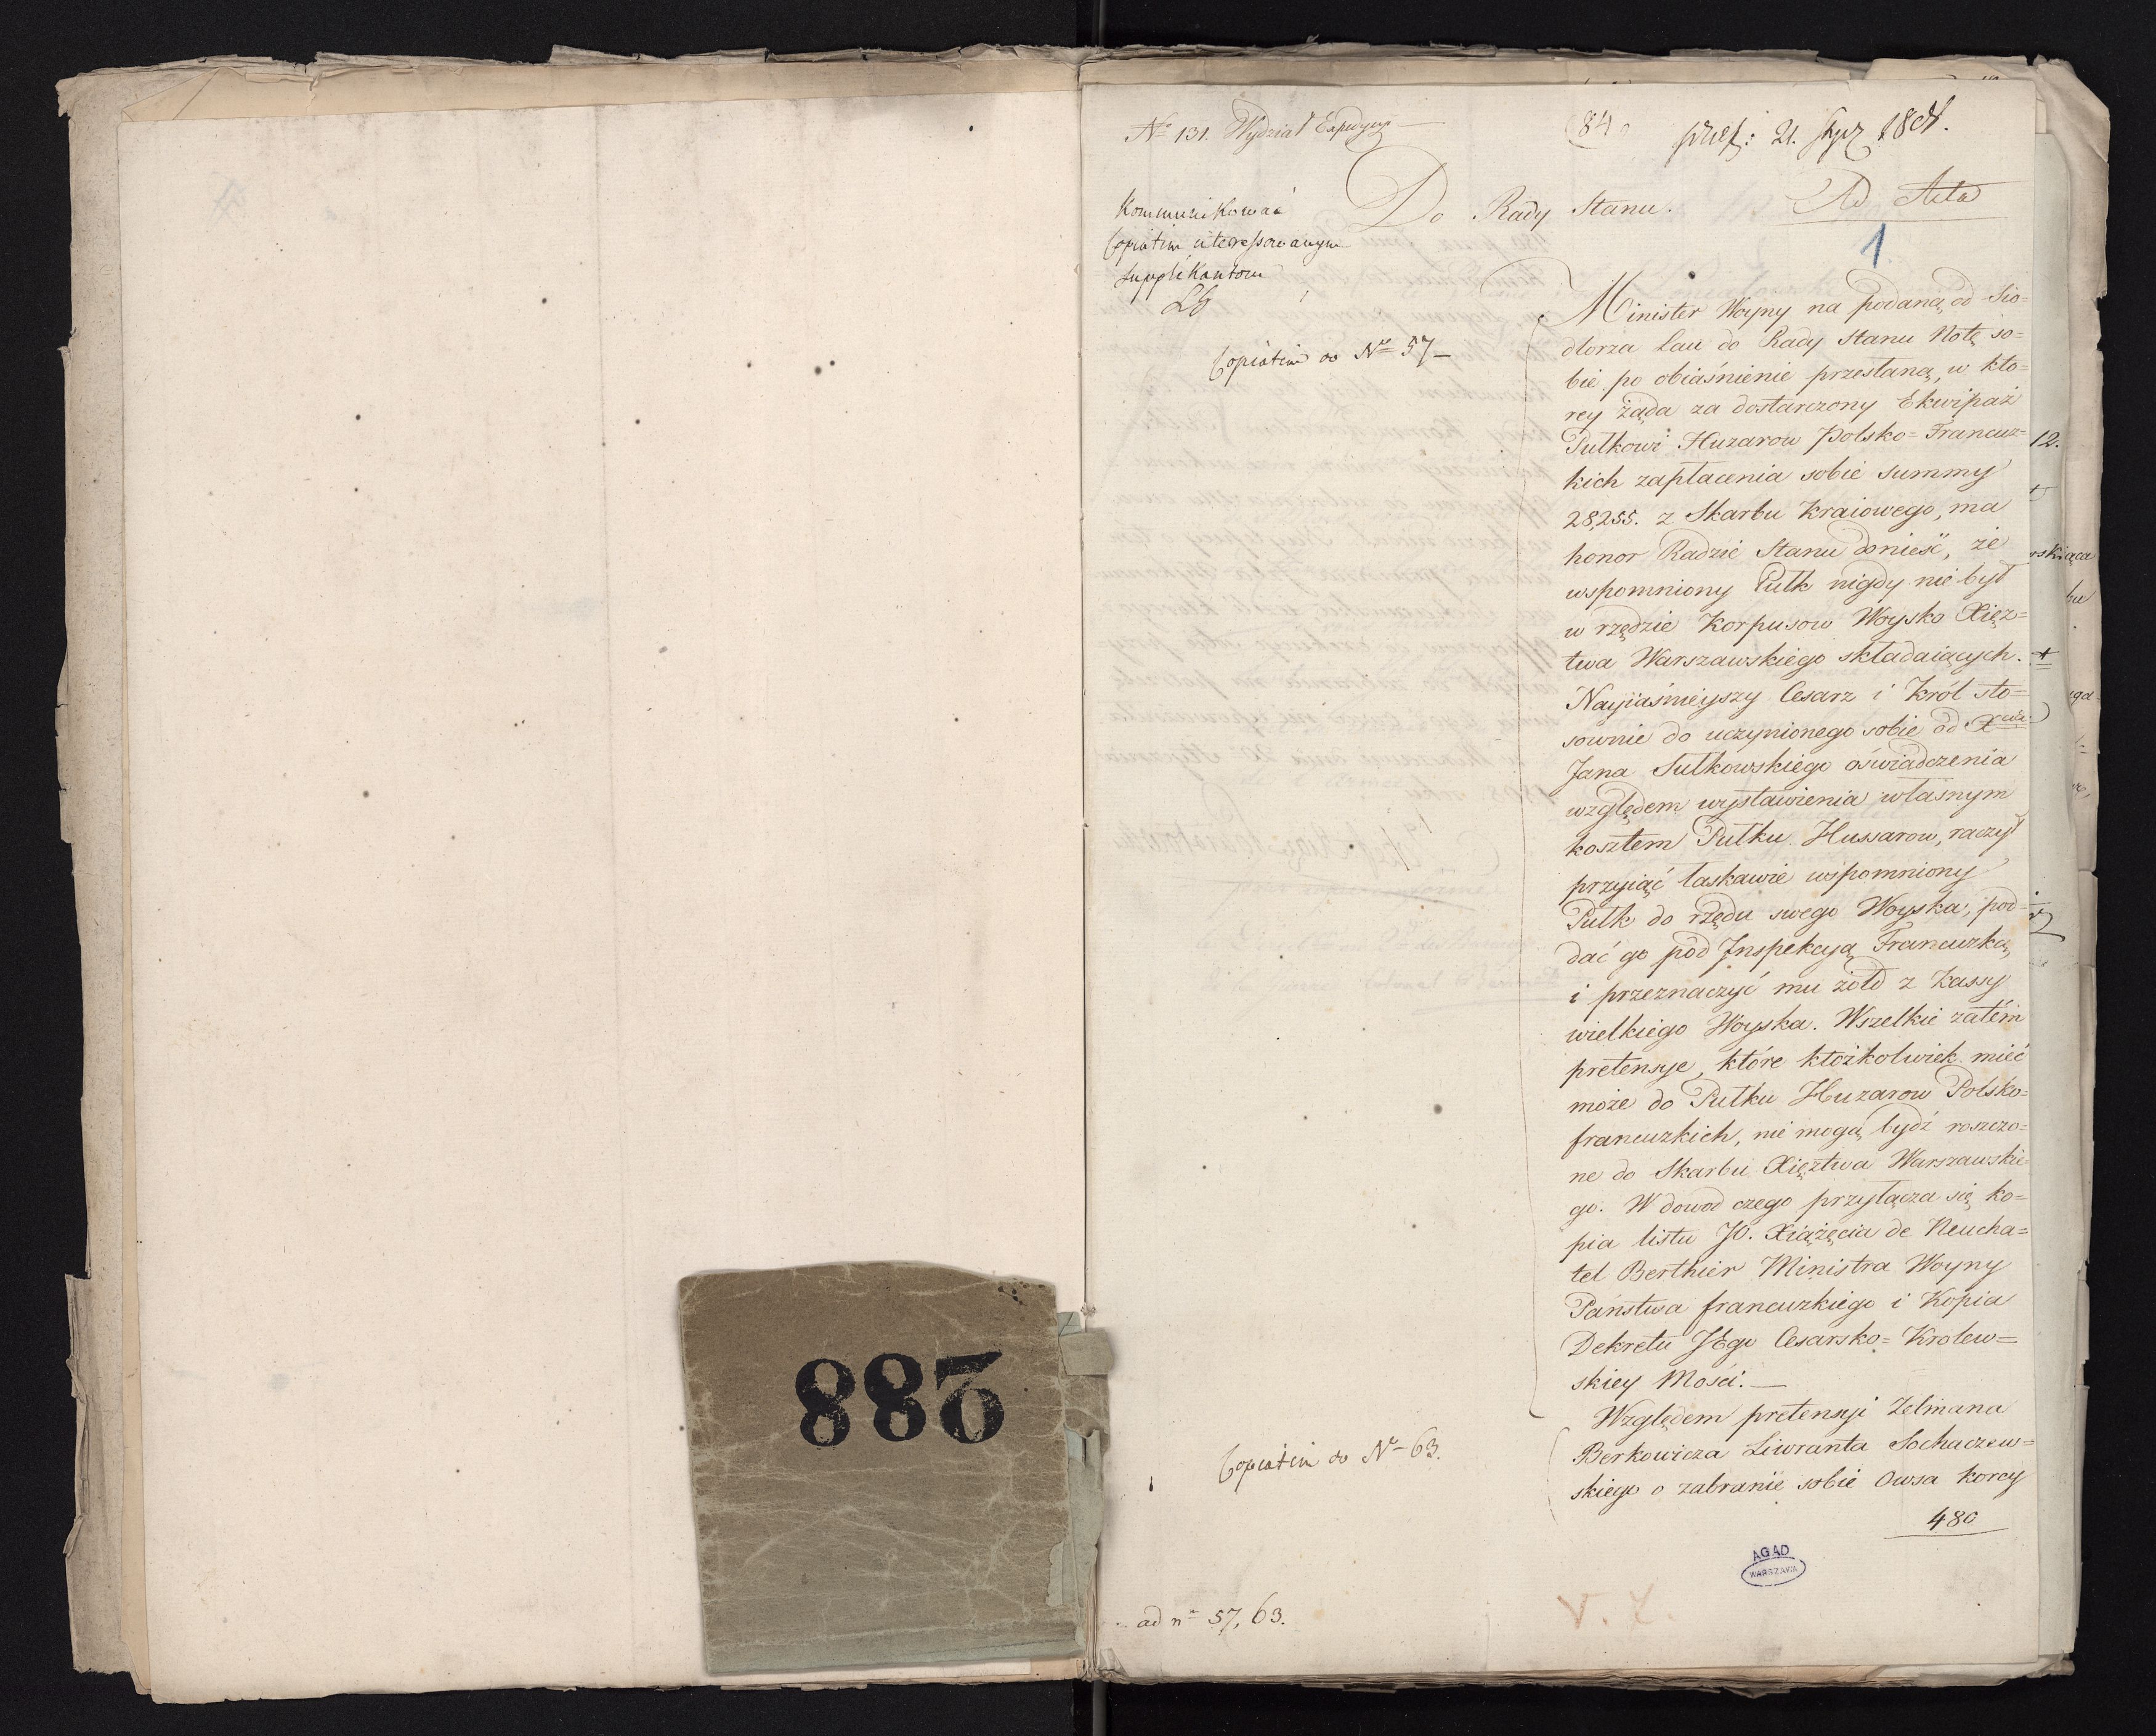 No 131. Wydział Expedycyi
84
21. 180
Do Rady Stanu.
Ad Acta
1
Kommunikować
Copiatim interessowanym
Supplikantom
Copiatim do No 57
Minister Woyny na podaną od Sio=
dlorza Lau do Rady Stanu Notę so=
bie po obiaśnienie przesłaną, w kto=
rey żąda za dostarczony Ekwipaż
Pułkowi Huzarow Polsko=Francuz=
kich zapłacenia sobie Summy
28,255. z Skarbu Kraiowego, ma
honor Radzie Stanu donieść, że
wspomniony Pułk nigdy nie był
w rzędzie Korpusow Woysko Xięz=
twa Warszawskiego składaiących.
Nayiaśnieyszy Cesarz i Król sto=
sownie do uczynionego sobie od Xcia
Jana Sułkowskiego oświadczenia
względem wystawienia własnym
kosztem Pułku Hussarow, raczył
przyiąć łaskawie wspomniony
Pułk do rzędu swego Woyska, pod=
dać go pod Inspekcyą Francuzką,
i przeznaczyć mu żołd z Kassy
wielkiego Woyska. Wszelkie zatém
pretensye, które ktożkolwiek mieć
może do Pułku Huzarow Polsko=
francuzkich, nie mogą bydź roszczo=
ne do Skarbu Xięztwa Warszawskie=
go. W dowod czego przyłącza się ko=
pia listu JO. Xiążęcia de Neucha=
tel Berthier Ministra Woyny
Państwa francuzkiego i Kopia
Dekretu JEgo Cesarsko=Krolew=
skiey Mości.
Względem pretensyi Zelmana
Berkowicza Liwranta Sochaczew=
skiego o zabranie sobie Owsa korcy
480
Copiatim do No 63.
ad no 57, 63.
AGAD
WARSZAWA
V.
288
12.